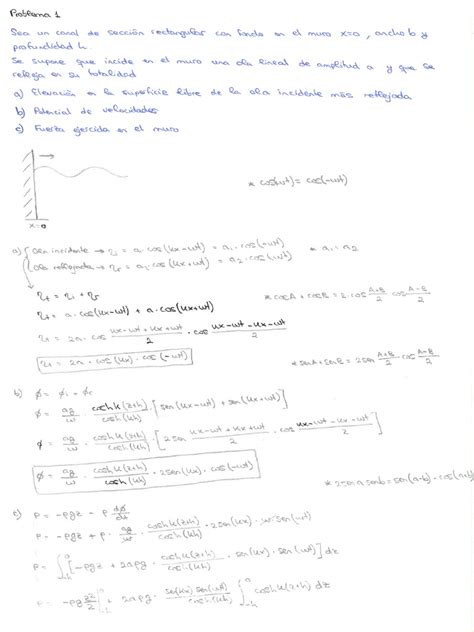 Problema 1
Sea un canal de sección rectangular con fondo en el muro x=0, ancho b y
profundidad h.
Se supone que incide en el muro una ola lineal de amplitud a y que se
refleja en su totalidad
a) Elevación en la superficie libre de la ola incidente más reflejada
b) Potencial de velocidades
c) Fuerza ejercida en el muro
* cos(wt) = cos(-wt)
x=0
a) Ola incidente → η_i = a·cos(kx-wt) = a_1·cos(-wt) * a_1 = a_2
Ola reflejada → η_r = a_1 cos(kx+wt) = a_2 cos(-wt)
η_t = η_i + η_r
η_t = a·cos(kx-wt) + a·cos(kx+wt) * cosA + cosB = 2·cos (A+B)/2 cos (A-B)/2
η_t = 2a·cos (kx-wt+kx+wt)/2 · cos (kx-wt-kx-wt)/2
η_t = 2a·cos(kx)·cos(-wt) * senA + senB = 2sen (A+B)/2 · cos (A-B)/2
b) φ = φ_i + φ_r
φ = ag/w · cosh k(z+h)/cosh(kh) · [sen(kx-wt) + sen(kx+wt)]
φ = ag/w · cosh k(z+h)/cosh(kh) [2sen (kx-wt+kx+wt)/2 · cos (kx-wt-kx-wt)/2]
φ = ag/w · cosh k(z+h)/cosh(kh) · 2sen(kx)·cos(-wt)
c) P = -ρgz - ρ dφ/dt
P = -ρgz + ρ · ag/w · cosh k(z+h)/cosh(kh) · 2sen(kx) · w·sen(-wt)
P = ∫_{-h}^{0} [-ρgz + 2aρg · cosh k(z+h)/cosh(kh) · sen(kx)·sen(wt)] dz